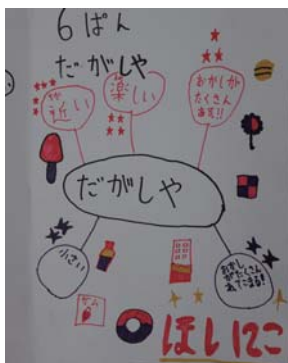 6ぱん
だがしや
近い
楽しい
おかしが
たくさん
ある!!
だがしや
小さい
おかし
がたくさん
ガム
ほし12こ